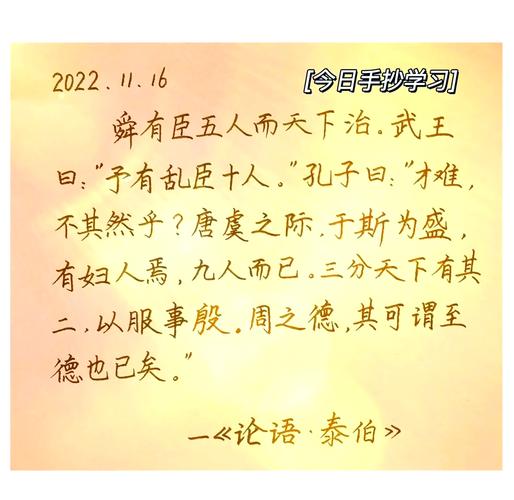 2022.11.16 [今日手抄学习]
舜有臣五人而天下治。武王
曰:"予有乱臣十人。"孔子曰:"才难,
不其然乎?唐虞之际,于斯为盛,
有妇人焉,九人而已。三分天下有其
二,以服事殷。周之德,其可谓至
德也已矣。"
—《论语·泰伯》